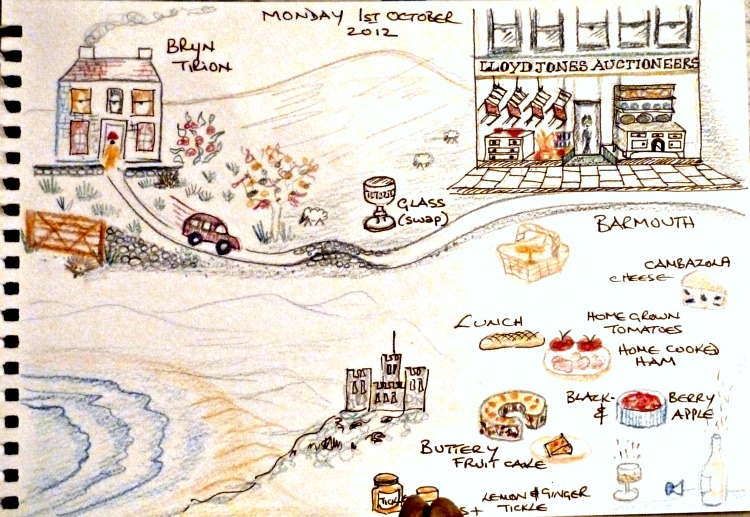 MONDAY 1ST OCTOBER
2012
BRYN
TIRION
LLOYD JONES AUCTIONEERS
GLASS
(SWAP)
BARMOUTH
CAMBAZOLA
CHEESE
LUNCH
HOME GROWN
TOMATOES
HOME COOKED
HAM
BLACK-
&
BERRY
APPLE
BUTTERY
FRUIT CAKE
LEMON & GINGER
TICKLE
TICKLE